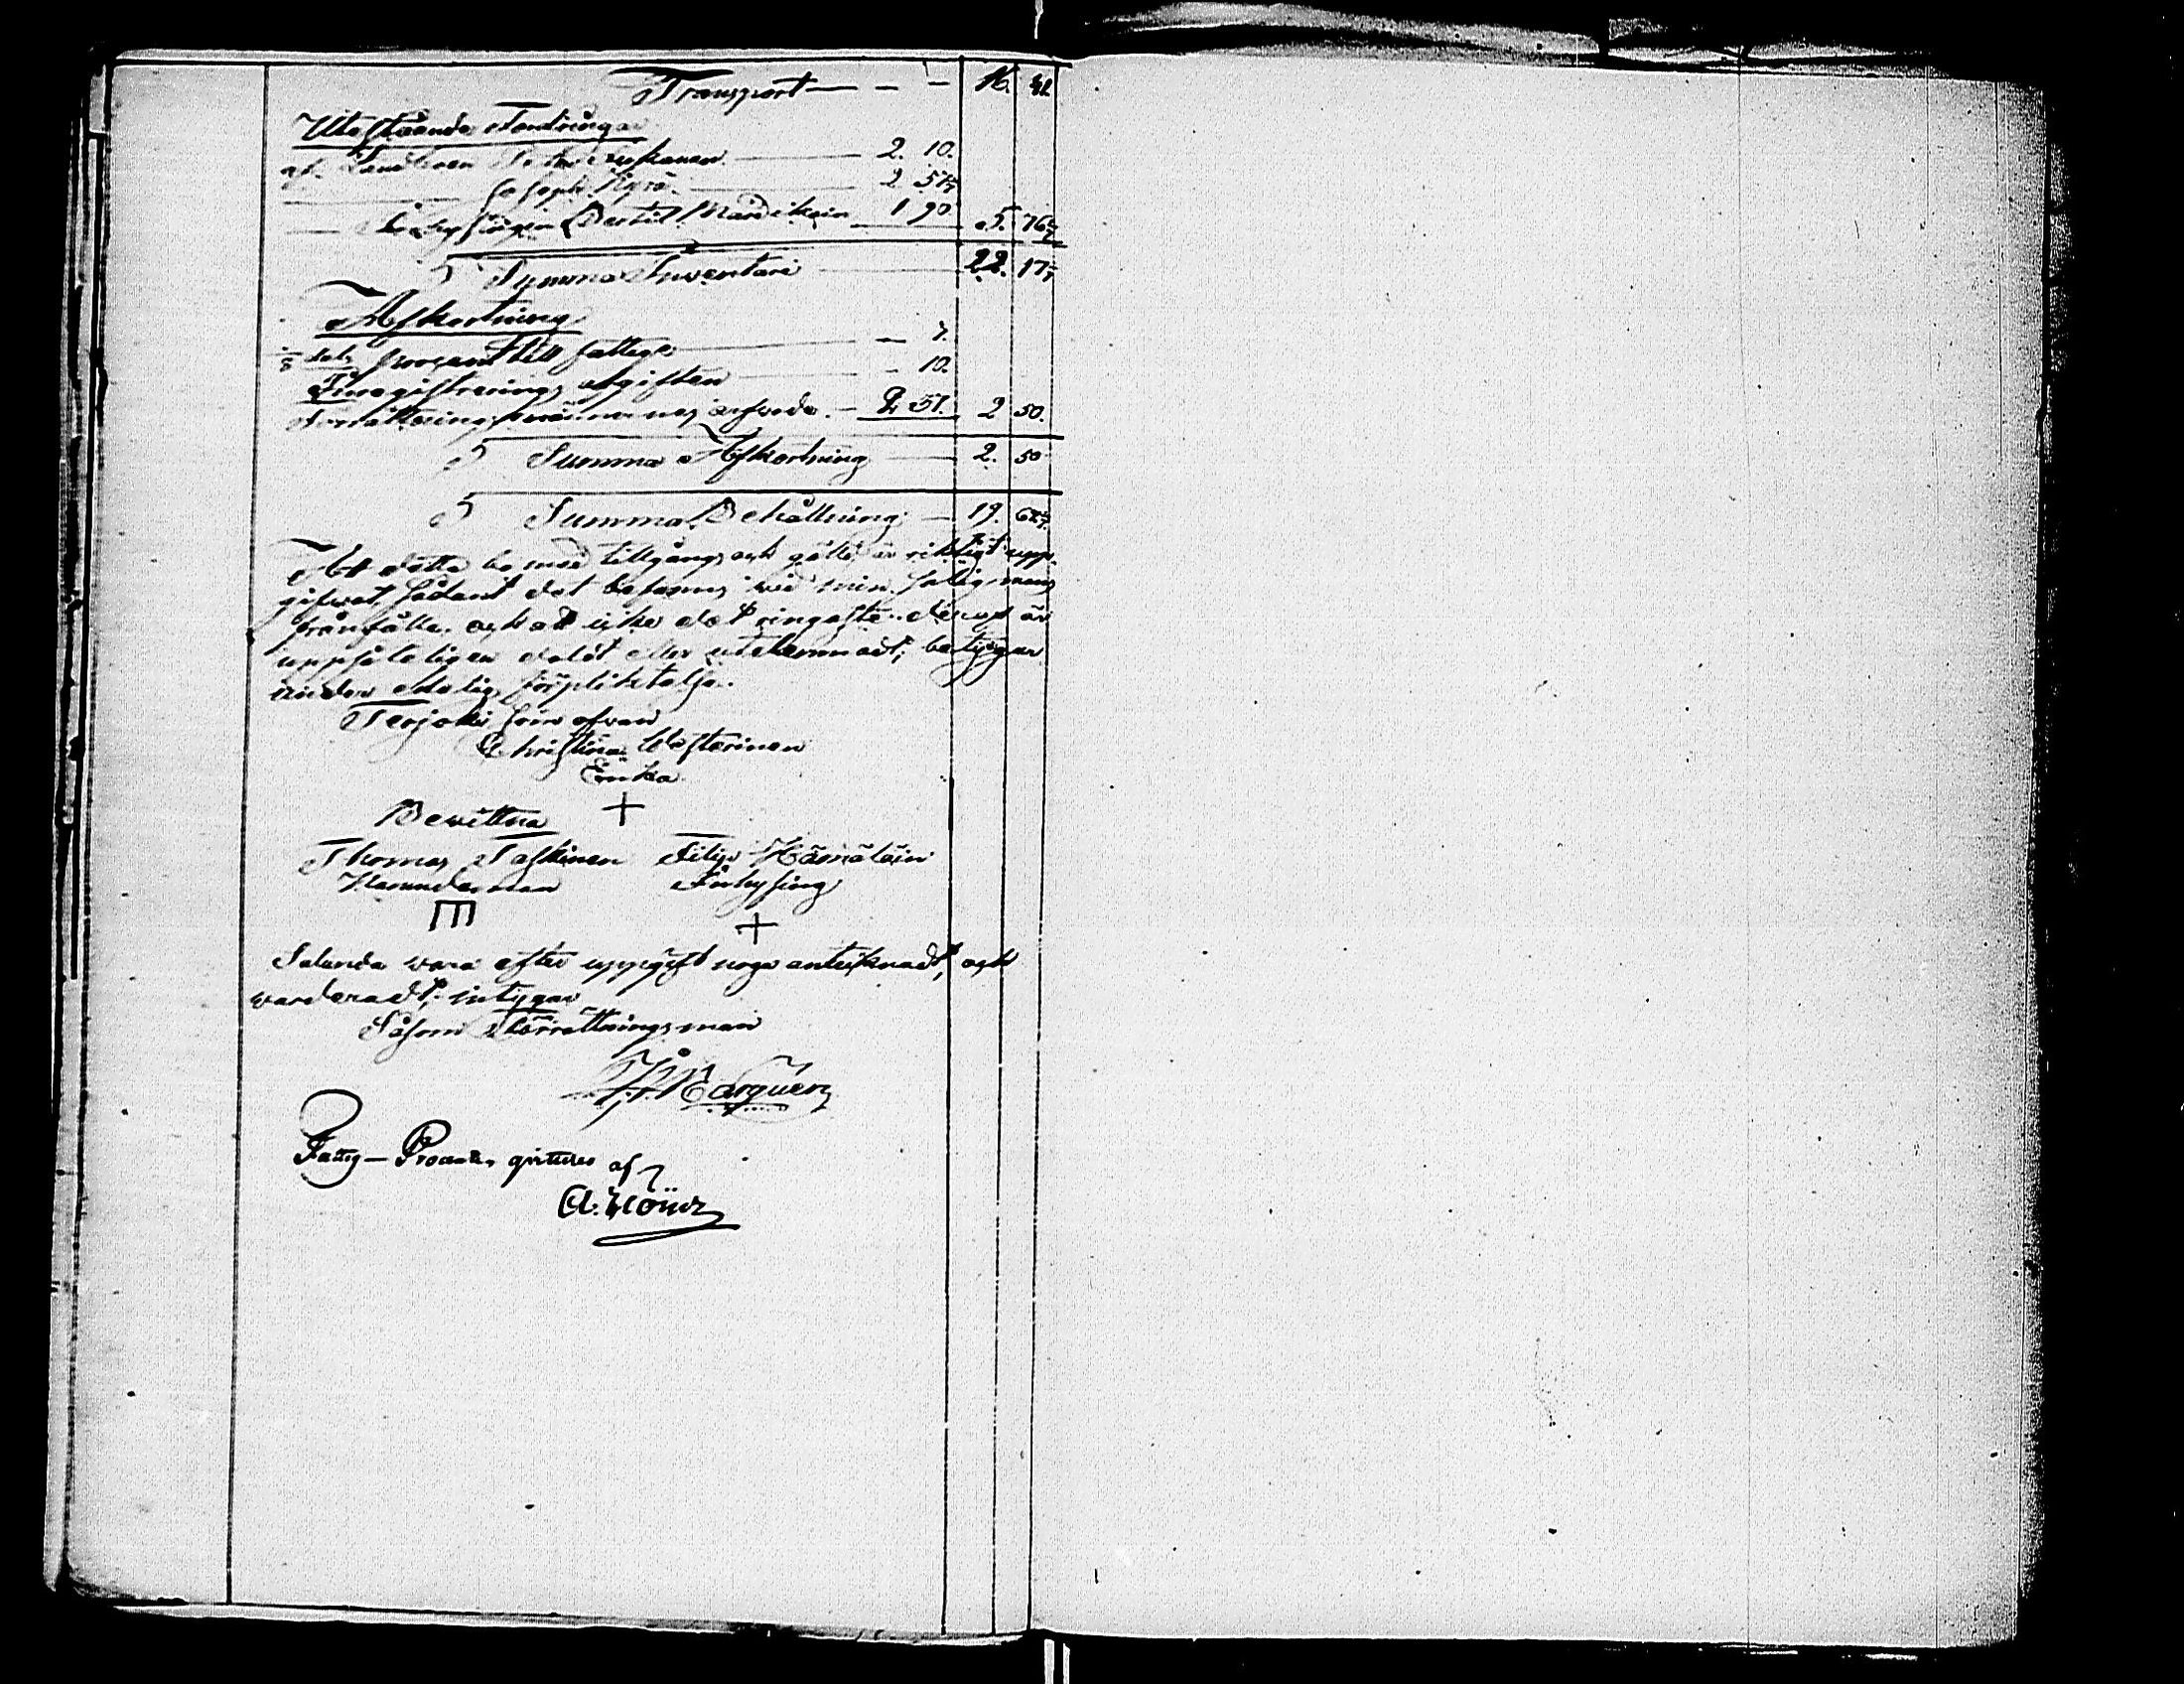 Transport — - - 16. 41.
Utestående Fordringar
af Landboen Peter 2. 10.
Joseph Kyrö 2 57 1/7
Bertil 1 90 5. 76 5/7
S Summa Inventarii 22. 17 5/7
Afkortning
1/8 dels procent till fattige — 7.
Inregistrerings afgiften - 10.
Förrättningsmännernas arfvode. — 2 50.
S Summa Afkortning 2. 50
S Summa Behållning — 19. 67 5/7
At detta bo med tillgång och gäld är riktigt upp-
gifwet sådant det befanns wid min salig mans
frånfälle, och at icke det ringaste deraf är
uppsåteligen doldt eller utelemnadt; betygar
under Edelig förpliktelse.
Terjoki som ofwan
Christina Westerinen
Enka
+
Bewittna
Thomas Taskinen Filip Hämäläin
Inhysing
+
Salunda wara efter uppgift noga anteknadt, och
warderadt; intygar
Såsom Förrättningsman
Fattig-Procenten qvitteras af